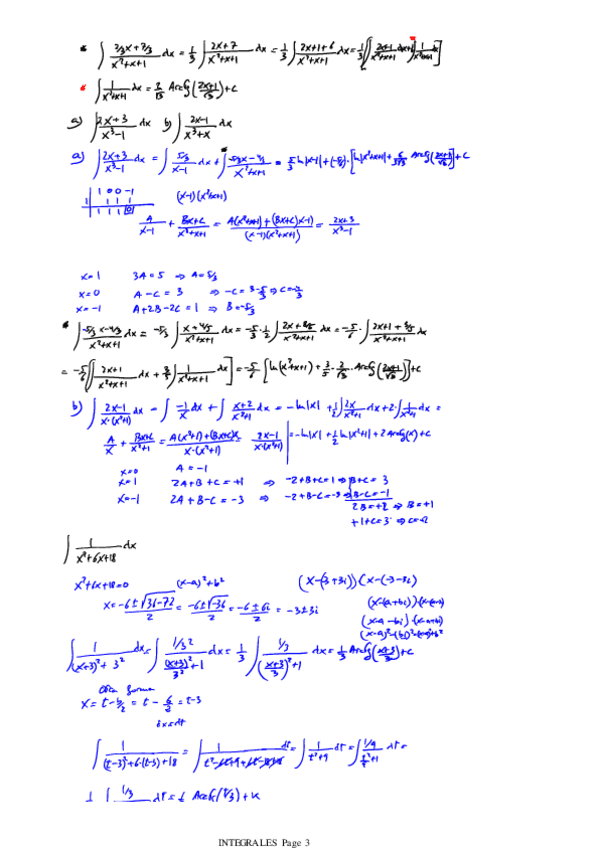 ∫ (2/3x+7/3)/(x²+x+1) dx = 1/3 ∫ (2x+7)/(x²+x+1) dx = 1/3 ∫ (2x+1+6)/(x²+x+1) dx = 1/3 [∫ (2x+1)/(x²+x+1) dx + ∫ 1/(x²+x+1) dx]
∫ 1/(x²+x+1) dx = 2/√3 Arctg((2x+1)/√3) + C
a) ∫ (2x+3)/(x³-1) dx b) ∫ (2x-1)/(x³+x) dx
a) ∫ (2x+3)/(x³-1) dx = ∫ (5/3)/(x-1) dx + ∫ (-5/3x-4/3)/(x²+x+1) = 5/3 ln|x-1| + (-5/6)·[ln|x²+x+1| + 6/(5√3) Arctg((2x+1)/√3)] + C
1 0 0 -1
1 1 1 1
1 1 1 0
(x-1)(x²+x+1)
A/(x-1) + (Bx+C)/(x²+x+1) = (A(x²+x+1)+(Bx+C)(x-1))/((x-1)(x²+x+1)) = (2x+3)/(x³-1)
x=1 3A=5 ⇒ A=5/3
x=0 A-C=3 ⇒ -C=3-5/3 ⇒ C=-4/3
x=-1 A+2B-2C=1 ⇒ B=-5/3
∫ (-5/3x-4/3)/(x²+x+1) dx = -5/3 ∫ (x+4/5)/(x²+x+1) dx = -5/3·1/2 ∫ (2x+8/5)/(x²+x+1) dx = -5/6·∫ (2x+1+3/5)/(x²+x+1) dx
= -5/6 [∫ (2x+1)/(x²+x+1) dx + 3/5 ∫ 1/(x²+x+1) dx] = -5/6 [ln(x²+x+1) + 3/5·2/√3·Arctg((2x+1)/√3)] + C
b) ∫ (2x-1)/(x·(x²+1)) dx = ∫ -1/x dx + ∫ (x+2)/(x²+1) dx = -ln|x| + 1/2 ∫ 2x/(x²+1) dx + 2·∫ 1/(x²+1) dx =
A/x + (Bx+C)/(x²+1) = (A(x²+1)+(Bx+C)x)/(x·(x²+1)) (2x-1)/(x·(x²+1)) = -ln|x| + 1/2 ln|x²+1| + 2 Arctg(x) + C
x=0 A=-1
x=1 2A+B+C=+1 ⇒ -2+B+C=1 ⇒ B+C=3
x=-1 2A+B-C=-3 ⇒ -2+B-C=-3 ⇒ B-C=-1
2B=+2 ⇒ B=+1
+1+C=3 ⇒ C=2
∫ 1/(x²+6x+18) dx
x²+6x+18=0 (x-a)²+b² (x-(-3+3i))(x-(-3-3i))
x = (-6±√(36-72))/2 = (-6±√-36)/2 = (-6±6i)/2 = -3±3i
(x-a-bi)·(x-a+bi)
(x-a)²-(bi)²
∫ 1/((x+3)²+3²) dx = ∫ (1/3²)/((x+3)²/3²+1) dx = 1/3 ∫ (1/3)/(((x+3)/3)²+1) dx = 1/3 Arctg((x+3)/3) + C
Otra forma
x = t-b/2 = t-6/2 = t-3
dx=dt
∫ 1/((t-3)²+6·(t-3)+18) = ∫ 1/(t²-6t+9+6t-18+18) dt = ∫ 1/(t²+9) dt = ∫ (1/9)/(t²/9+1) dt =
Arctg(t/3) + K
INTEGRALES Page 3